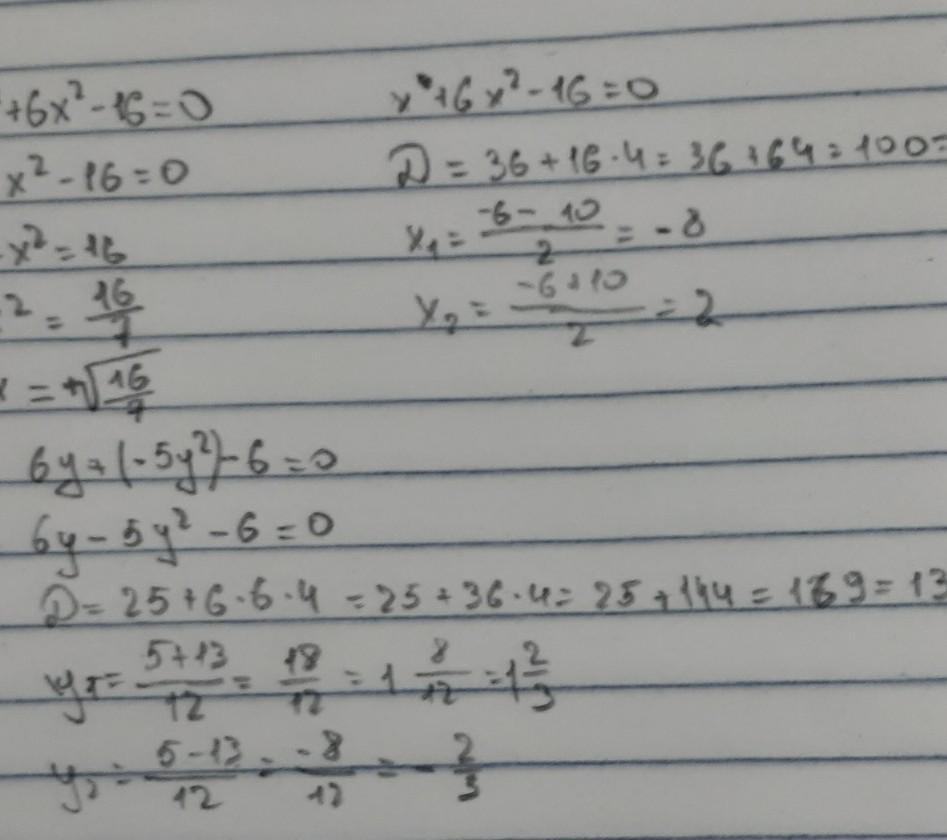 +6x² - 16 = 0
x² - 16 = 0
x² = 16
² = 16/7
x = ±√16/7
x⁴ + 6x² - 16 = 0
D = 36 + 16·4 = 36 + 64 = 100 =
x₁ = (-6 - 10)/2 = -8
x₂ = (-6 + 10)/2 = 2
6y + (-5y²) - 6 = 0
6y - 5y² - 6 = 0
D = 25 + 6·6·4 = 25 + 36·4 = 25 + 144 = 169 = 13
y₁ = (5+13)/12 = 18/12 = 1 8/12 = 1 2/3
y₂ = (5-13)/12 = -8/12 = -2/3